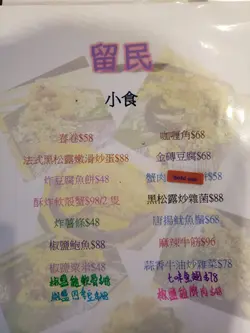 留民
小食
春卷$58
咖喱角$68
法式黑松露嫩滑炒蛋$88
金磚豆腐$68
炸豆腐魚餅$48
蟹肉
酥炸軟殼蟹$98/2隻
黑松露炒雜菌$88
炸薯條$48
唐揚魷魚鬚$68
椒鹽鮑魚$88
麻辣牛筋$98
椒鹽
$48
蒜香牛油炒雜菜$78
椒鹽
七味魚
$78
椒鹽
椒鹽